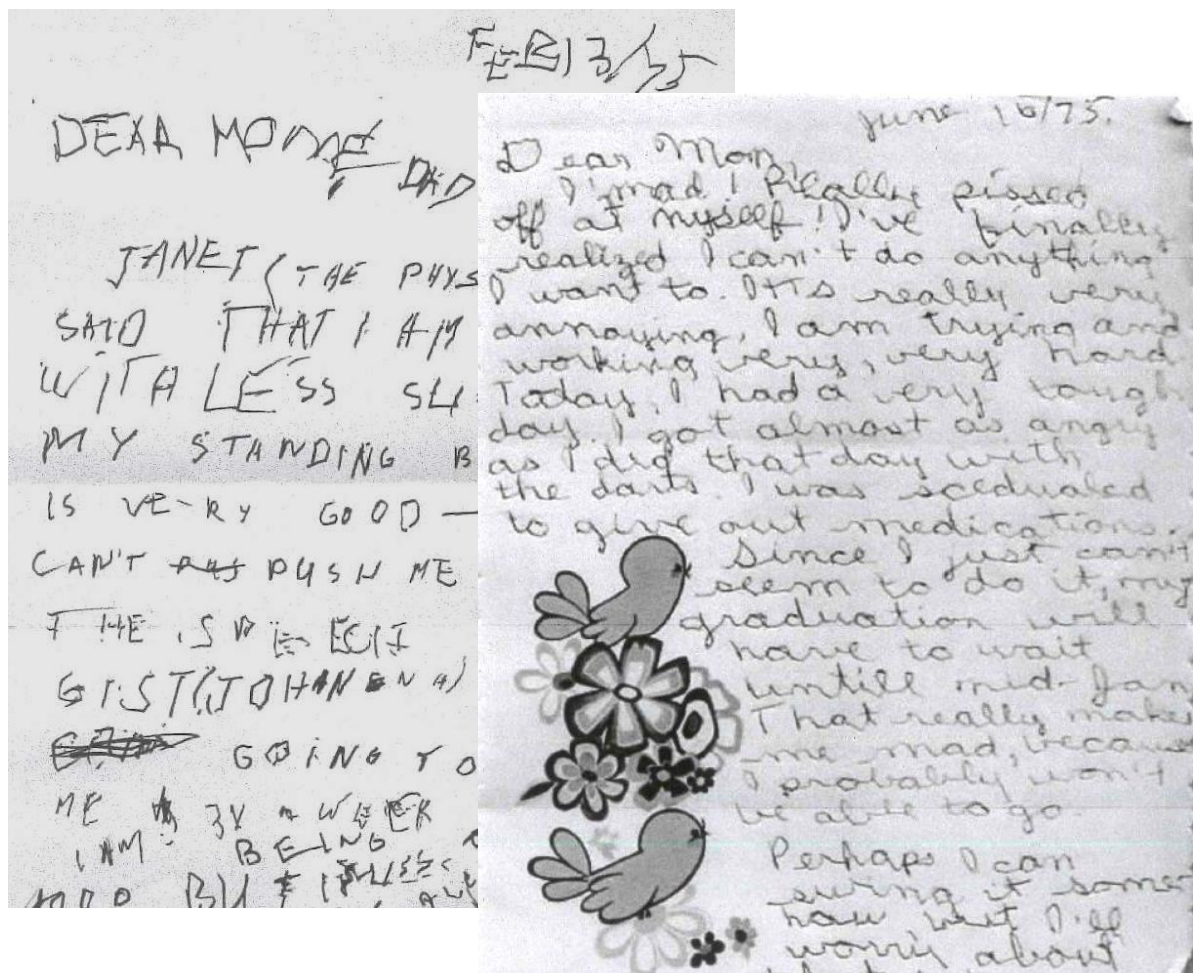 FEB 13/
DEAR MOM &
DAD
JANET (THE PHYS
SAID THAT I AM
WITH LESS SU
MY STANDING B
IS VERY GOOD —
CAN'T PUSH ME
THE SPEECH
GIST (JOHANENA)
GOING TO
ME 3X a WEEK
I AM BEING
June 16/75.
Dear Mom,
I'mad! Really pissed
off at myself! I've finally
realized I can't do anything
I want to. It's really very
annoying. I am trying and
working very, very hard
Today, I had a very tough
day. I got almost as angry
as I did that day with
the darts. I was scedualed
to give out medications.
Since I just can't
seem to do it, my
graduation will
have to wait
untill mid-Jan
That really makes
me mad, because
I probably won't
be able to go.
Perhaps I can
swing it some
how but I'll
worry about